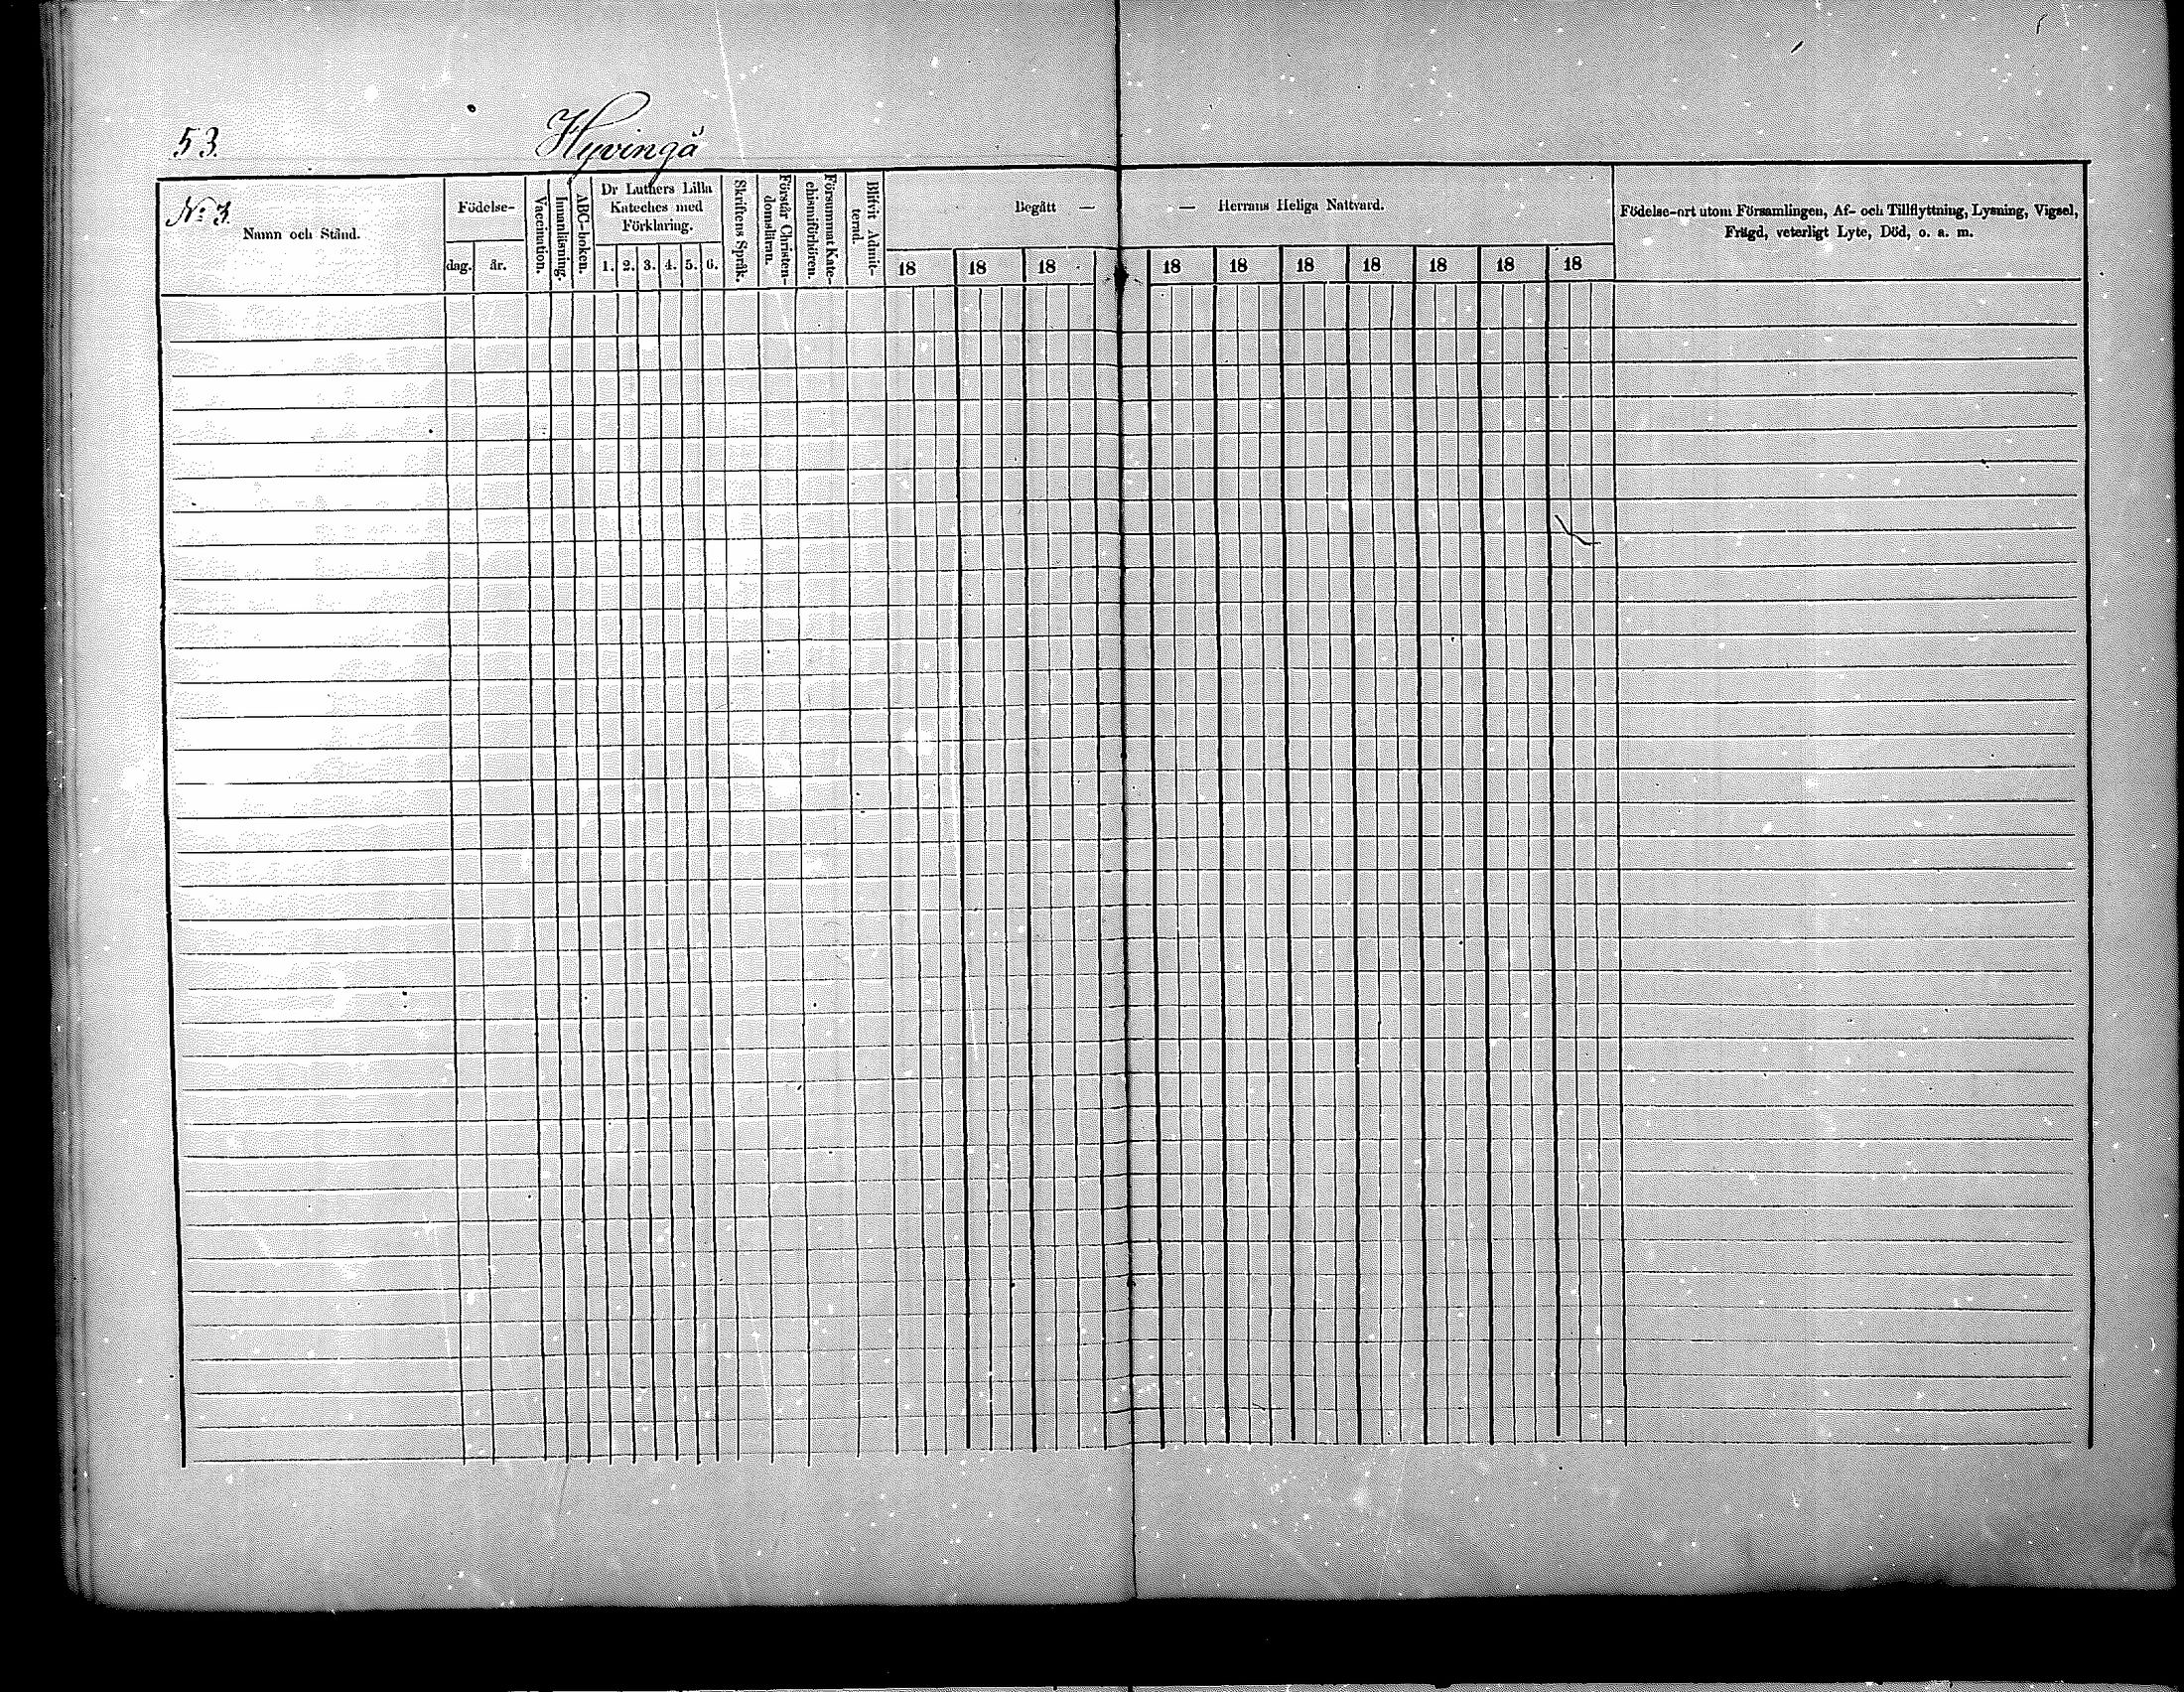 53.
Hyvingå
No 3.
Namn och Stånd.
Födelse-
dag. år.
Vaccination.
Innanläsning.
ABC-boken.
Dr Luthers Lilla
Kateches med
Förklaring.
1. 2. 3. 4. 5. 6.
Skriftens Språk.
Förstår Christen-
domsläran.
Försummat Kate-
chismiförhören.
Blifvit Admit-
terad.
Begått — — Herrans Heliga Nattvard.
18 18 18 18 18 18 18 18 18 18
Födelse-ort utom Församlingen, Af- och Tillflyttning, Lysning, Vigsel,
Frägd, veterligt Lyte, Död, o. a. m.